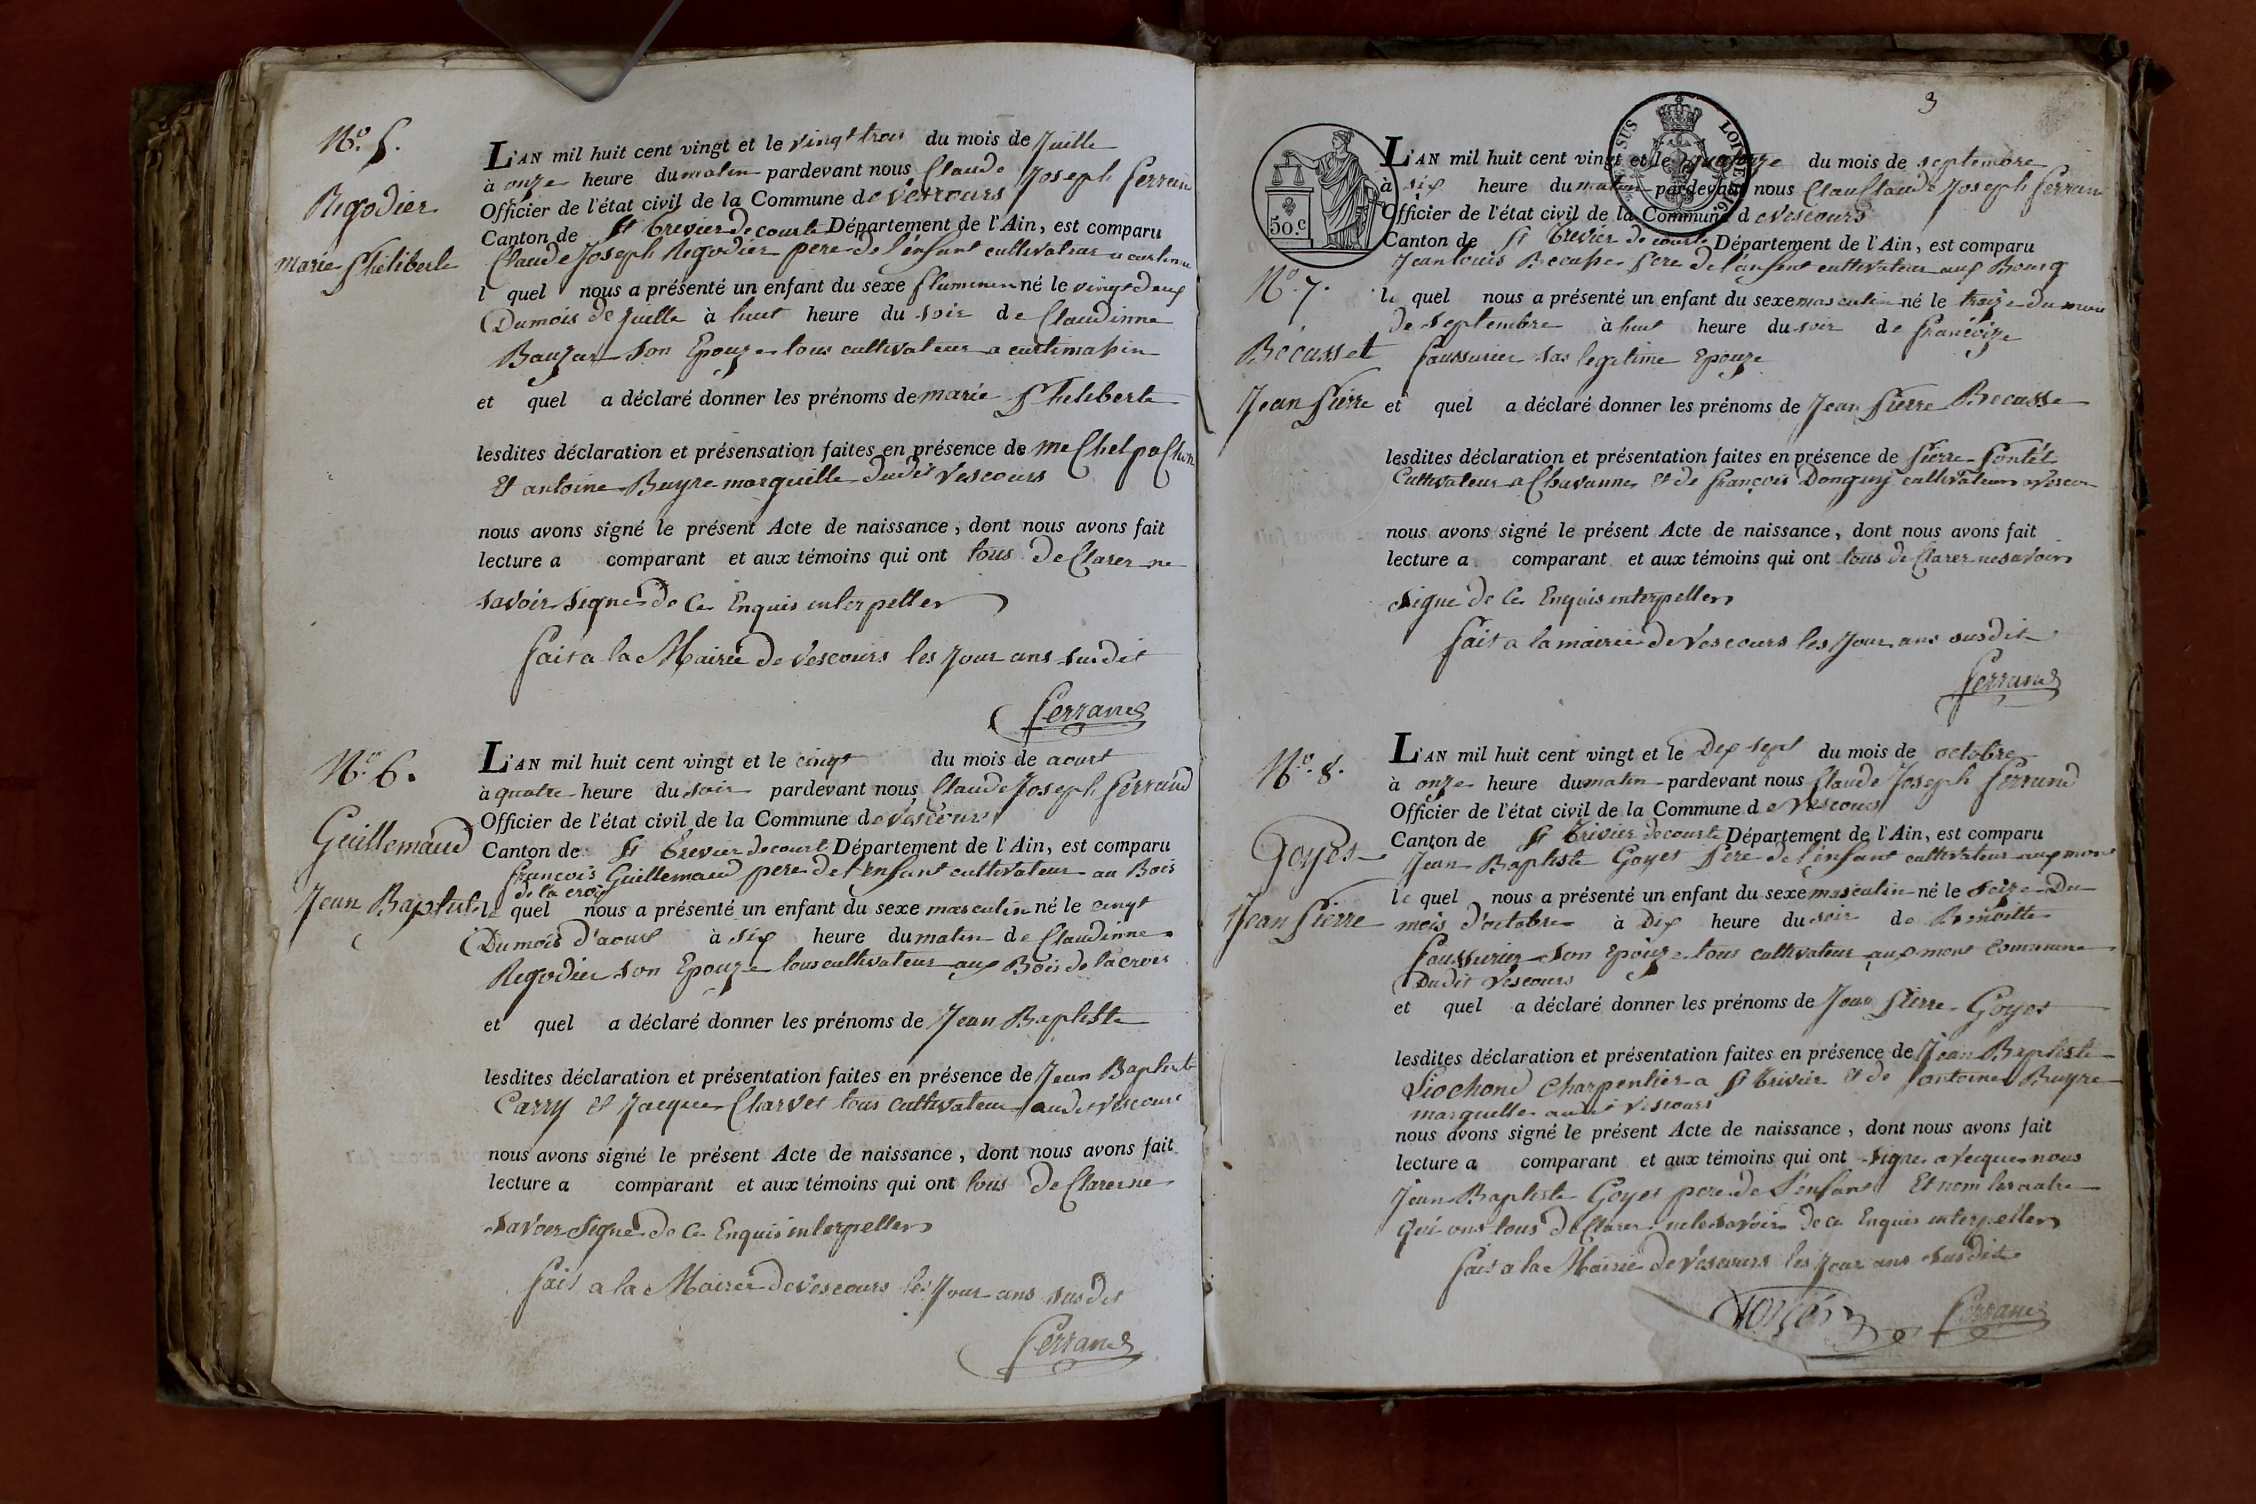 N.º 5.
Rigodier
marie Philiberte
L'AN mil huit cent vingt et le vingt trois du mois de Juille
à onze heure du matin pardevant nous Claude Joseph Ferrand
Officier de l'état civil de la Commune de Vescours
Canton de St Trevier de courte Département de l'Ain, est comparu
Claude Joseph Rigodier pere de l'enfant cultivateur a
l quel nous a présenté un enfant du sexe né le vingt deux
Du mois de Juille à huit heure du soir de Claudinne
son Epouze tous cultivateur a
et quel a déclaré donner les prénoms de marie Philiberte
lesdites déclaration et présensation faites en présence de
Et antoine Buyre marguille dudit Vescours
nous avons signé le présent Acte de naissance, dont nous avons fait
lecture a comparant et aux témoins qui ont tous de Clarer ne
savoir signe de Ce Enquis interpeller
fait a la Mairie de Vescours les Jour ans susdit
Ferrand
N.º 6.
Guillemaud
Jean Baptiste
L'AN mil huit cent vingt et le cinqt du mois de aoust
à quatre heure du soir pardevant nous Claude Joseph Ferrand
Officier de l'état civil de la Commune de Vescours
Canton de St Trevier de court Département de l'Ain, est comparu
francois Guillemaud pere de l'enfant cultivateur au Bois
de la croix
le quel nous a présenté un enfant du sexe masculin né le cinqt
Du mois d'aoust à six heure du matin de Claudinne
Rigodier son Epouze tous cultivateur aux Bois de la croix
et quel a déclaré donner les prénoms de Jean Baptiste
lesdites déclaration et présentation faites en présence de Jean Baptiste
Carry et Jacque Charvet tous cultivateur audit Vescours
nous avons signé le présent Acte de naissance, dont nous avons fait
lecture a comparant et aux témoins qui ont tous de Clarer ne
savoir signe de Ce Enquis interpeller
fait a la Mairie de Vescours les Jour ans susdit
Ferrand
3
50.c
SUS LOI DE 1816
N.º 7.
Bécusset
Jean Pierre
L'AN mil huit cent vingt et le quatorze du mois de septembre
à six heure du matin pardevant nous Clau Claude Joseph Ferrand
Officier de l'état civil de la Commune de Vescours
Canton de St Trevier de courte Département de l'Ain, est comparu
Jean louis Becusse pere de l'enfant cultivateur aux Bourg
le quel nous a présenté un enfant du sexe masculin né le treize du mois
de septembre à huit heure du soir de françoize
faussurier sas legitime Epouze
et quel a déclaré donner les prénoms de Jean Pierre Becusse
lesdites déclaration et présentation faites en présence de Pierre Pontet
Cultivateur a Chavannes Et de françois Donguy cultivateur a Vescour
nous avons signé le présent Acte de naissance, dont nous avons fait
lecture a comparant et aux témoins qui ont tous de Clarer ne savoir
signe de Ce Enquis interpeller
fait a la mairie de Vescours les Jour ans susdit
Ferrand
N.º 8.
Goyet
Jean Pierre
L'AN mil huit cent vingt et le Dix sept du mois de octobre
à onze heure du matin pardevant nous Claude Joseph Ferrand
Officier de l'état civil de la Commune de Vescours
Canton de St Trivier de courte Département de l'Ain, est comparu
Jean Baptiste Goyet Pere de l'enfant cultivateur aux mont
le quel nous a présenté un enfant du sexe masculin né le seize Du
mois d'octobre à Dix heure du soir de Benoitte
faussurier son Epouze tous cultivateur aux mont commune
Dudit Vescours
et quel a déclaré donner les prénoms de Jean Pierre Goyet
lesdites déclaration et présentation faites en présence de Jean Baptiste
Liochond charpentier a St Trivier Et de antoine Buyre
marguelle audit Vescours
nous avons signé le présent Acte de naissance, dont nous avons fait
lecture a comparant et aux témoins qui ont signe avecque nous
Jean Baptiste Goyet pere de l'enfant Et nom les autre
qui ont tous de Clarer ne le savoir de ce Enquis interpeller
fait a la Mairie de Vescours les Jour ans susdit
Ferrand